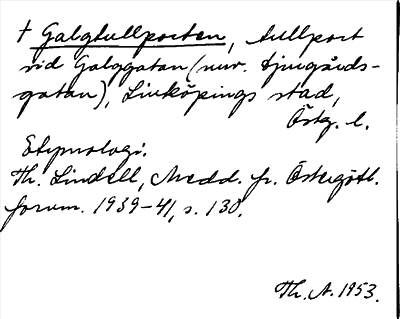 † Galgtullporten, tullport
vid Galggatan (nuv. Djurgårds-
gatan), Linköpings stad,
Östg. l.
Etymologi.
Th. Lindell, Medd. fr. Östergötl.
fornm. 1939-41, s. 130.
Th. A. 1953.